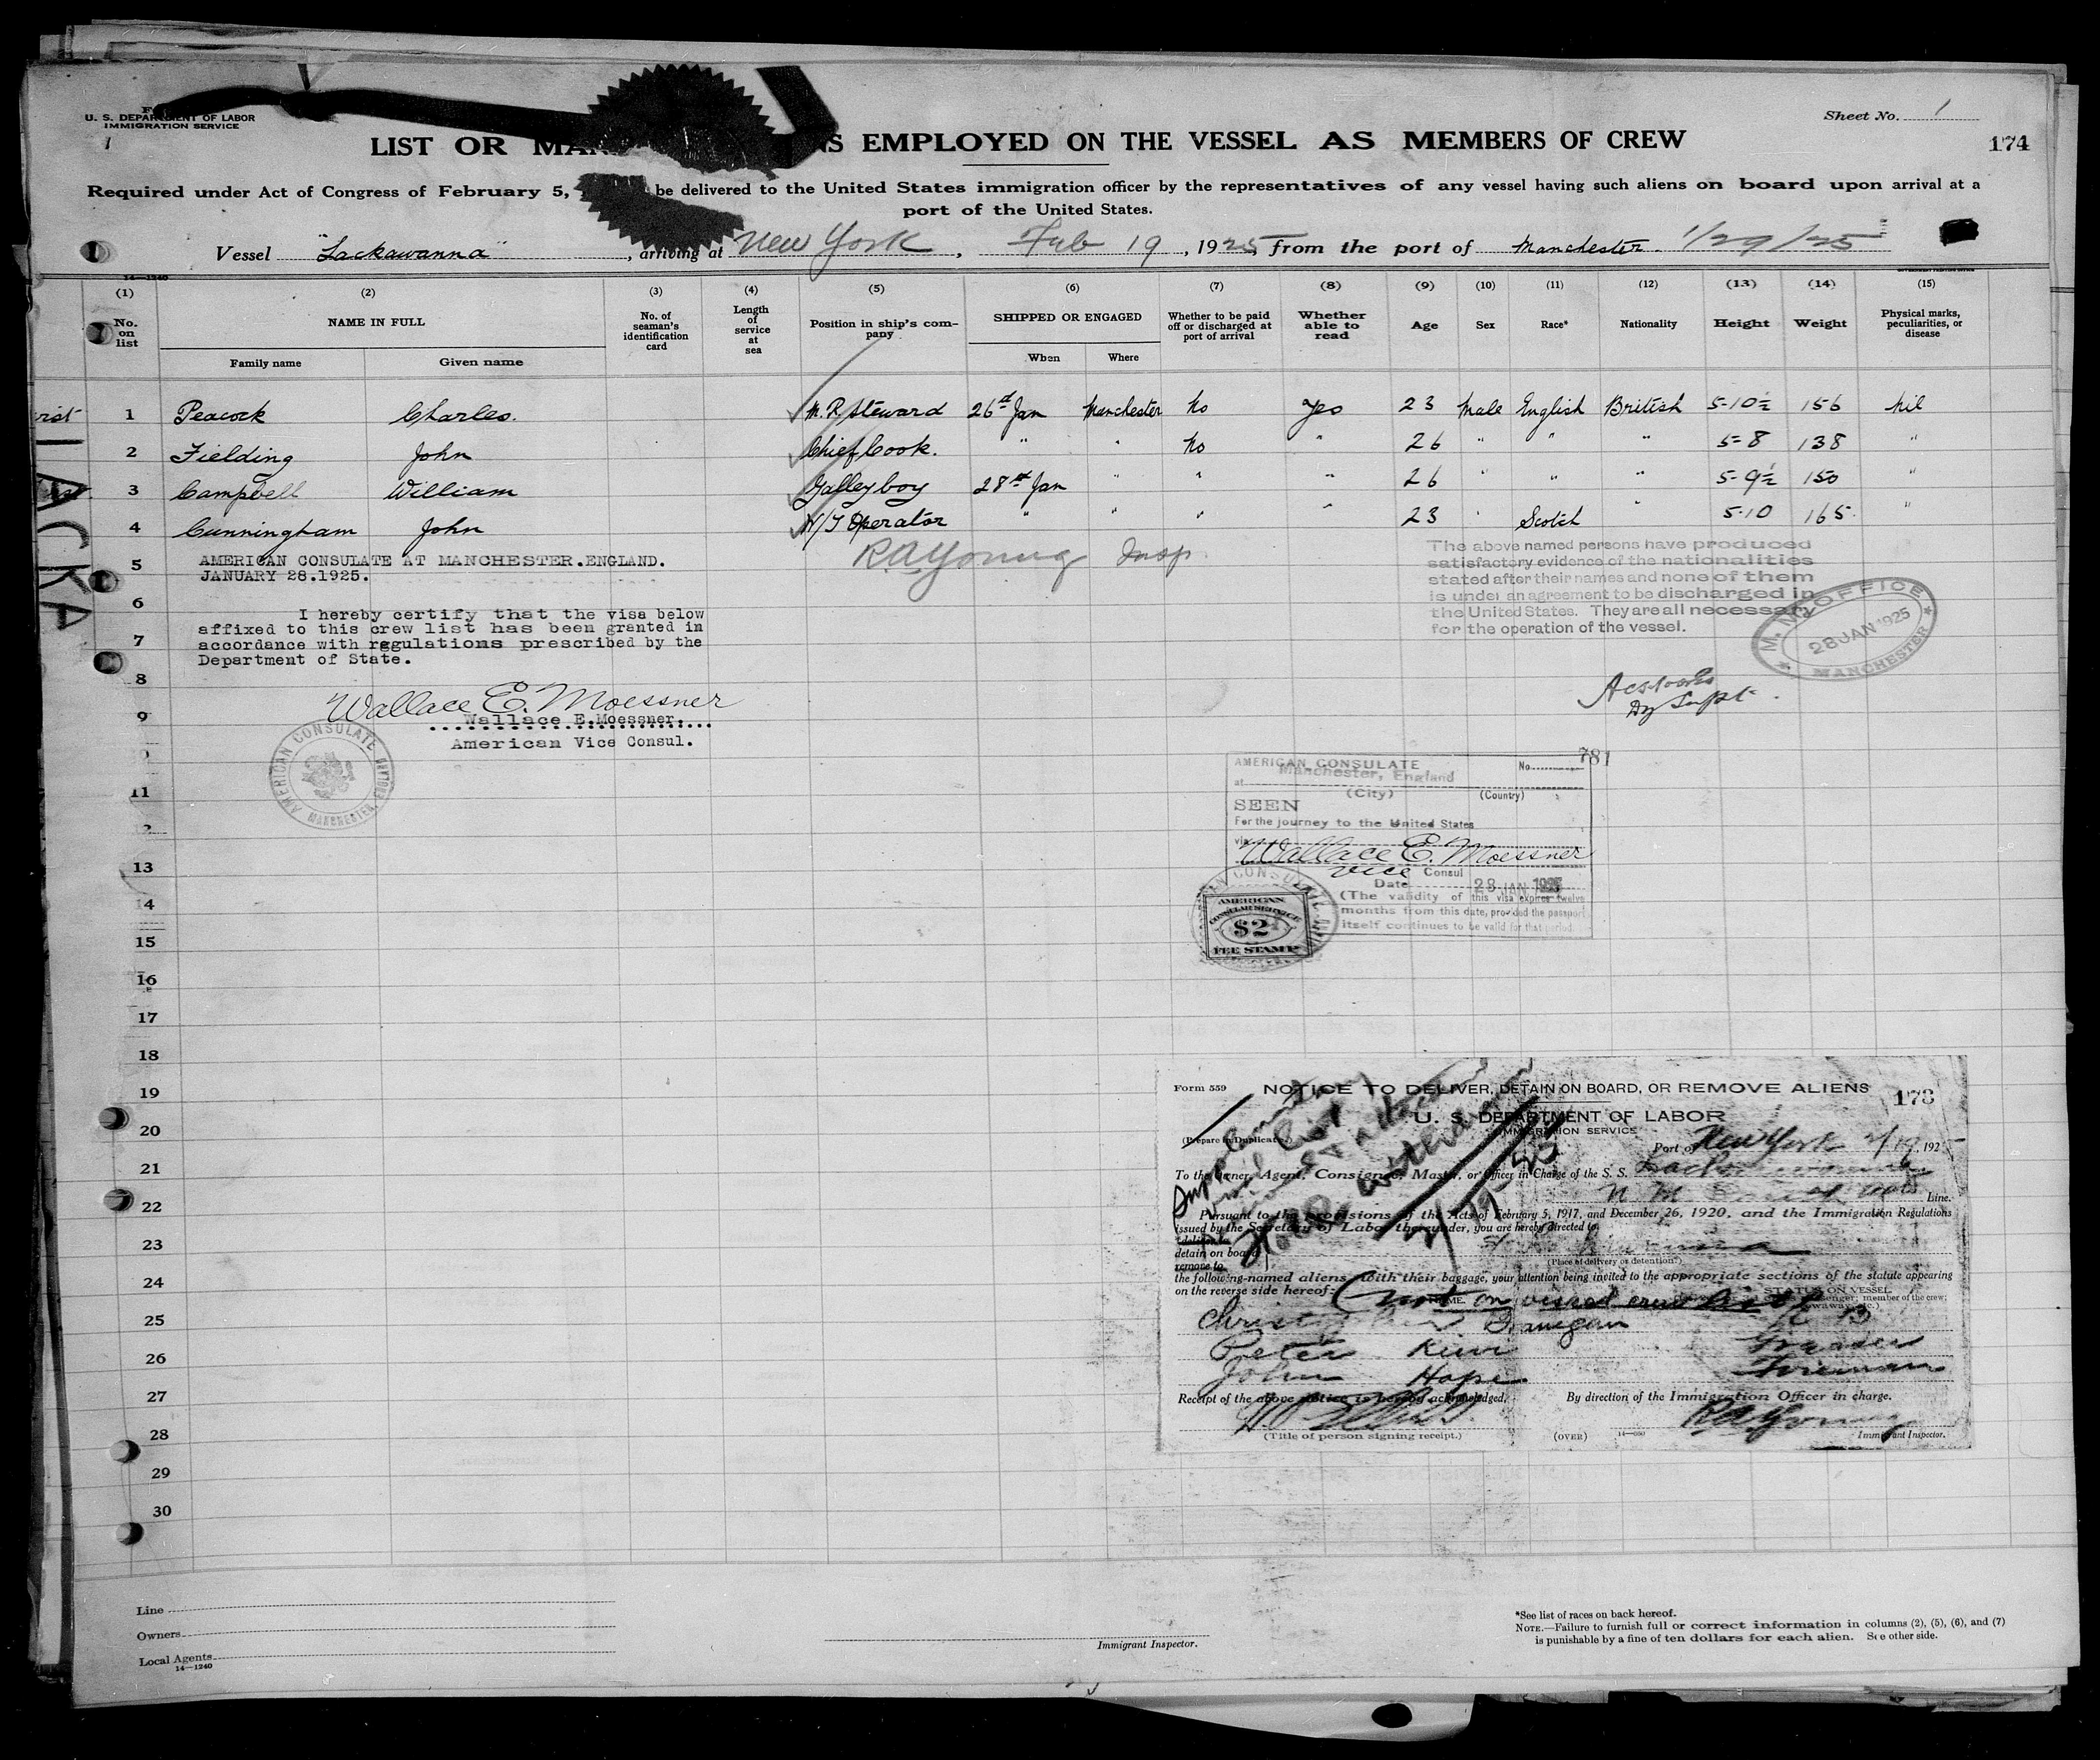 U. S. DEPARTMENT OF LABOR
IMMIGRATION SERVICE
Sheet No. 1
174
LIST OR EMPLOYED ON THE VESSEL AS MEMBERS OF CREW
Required under Act of Congress of February 5, be delivered to the United States immigration officer by the representatives of any vessel having such aliens on board upon arrival at a
port of the United States.
Vessel "Lackawanna", arriving at New York, Feb 19, 1925, from the port of Manchester 1/29/25
14—1240
(1) (2) (3) (4) (5) (6) (7) (8) (9) (10) (11) (12) (13) (14) (15)
No. on list
NAME IN FULL
Family name
Given name
No. of seaman's identification card
Length of service at sea
Position in ship's company
SHIPPED OR ENGAGED
When
Where
Whether to be paid off or discharged at port of arrival
Whether able to read
Age
Sex
Race*
Nationality
Height
Weight
Physical marks, peculiarities, or disease
1 Peacock Charles. M. R. Steward 26th Jan Manchester No Yes 23 Male English British 5-10½ 156 Nil
2 Fielding John Chief Cook. " " No " 26 " " " 5-8 138 "
3 Campbell William Galley boy 28th Jan " " " 26 " " " 5-9½ 150 "
4 Cunningham John W/T Operator " " " " 23 " Scotch " 5-10 165 "
LACKA
R A Young Insp
5 AMERICAN CONSULATE AT MANCHESTER.ENGLAND.
JANUARY 28.1925.
6
I hereby certify that the visa below
affixed to this crew list has been granted in
7
accordance with regulations prescribed by the
Department of State.
8
Wallace E. Moessner
9
Wallace E.Moessner.
American Vice Consul.
AMERICAN CONSULATE
MANCHESTER ENGLAND
The above named persons have produced
satisfactory evidence of the nationalities
stated after their names and none of them
is under an agreement to be discharged in
the United States. They are all necessary
for the operation of the vessel.
M. M. OFFICE
28 JAN 1925
MANCHESTER
Dy Supt.
AMERICAN CONSULATE No. 781
at Manchester, England
(City) (Country)
SEEN
For the journey to the United States
via
Wallace E. Moessner
Vice Consul
Date 28 JAN 1925
(The validity of this visa expires twelve
months from this date, provided the passport
itself continues to be valid for that period
AMERICAN
CONSULAR SERVICE
$2
FEE STAMP
11
13
14
15
16
17
18
19
20
21
22
23
24
25
26
27
28
29
30
Form 559 NOTICE TO DELIVER, DETAIN ON BOARD, OR REMOVE ALIENS 173
U. S. DEPARTMENT OF LABOR
IMMIGRATION SERVICE
(Prepare in Duplicate)
Port of New York 2/19, 1925
To the Owner, Agent, Consignee, Master, or Officer in Charge of the S. S. Lackawanna
Line.
Pursuant to the provisions of the Acts of February 5, 1917, and December 26, 1920, and the Immigration Regulations
issued by the Secretary of Labor thereunder, you are hereby directed to
deliver to
detain on board
remove to
(Place of delivery or detention.)
the following-named aliens with their baggage, your attention being invited to the appropriate sections of the statute appearing
on the reverse side hereof:
NAME. STATUS ON VESSEL
(not on visaed crew list
Peter
John Hope Fireman
Receipt of the above notice is hereby acknowledged. By direction of the Immigration Officer in charge.
R A Young
(Title of person signing receipt.) (OVER) Immigrant Inspector.
Line
Owners
Local Agents
14—1240
Immigrant Inspector.
*See list of races on back hereof.
NOTE.—Failure to furnish full or correct information in columns (2), (5), (6), and (7)
is punishable by a fine of ten dollars for each alien. See other side.